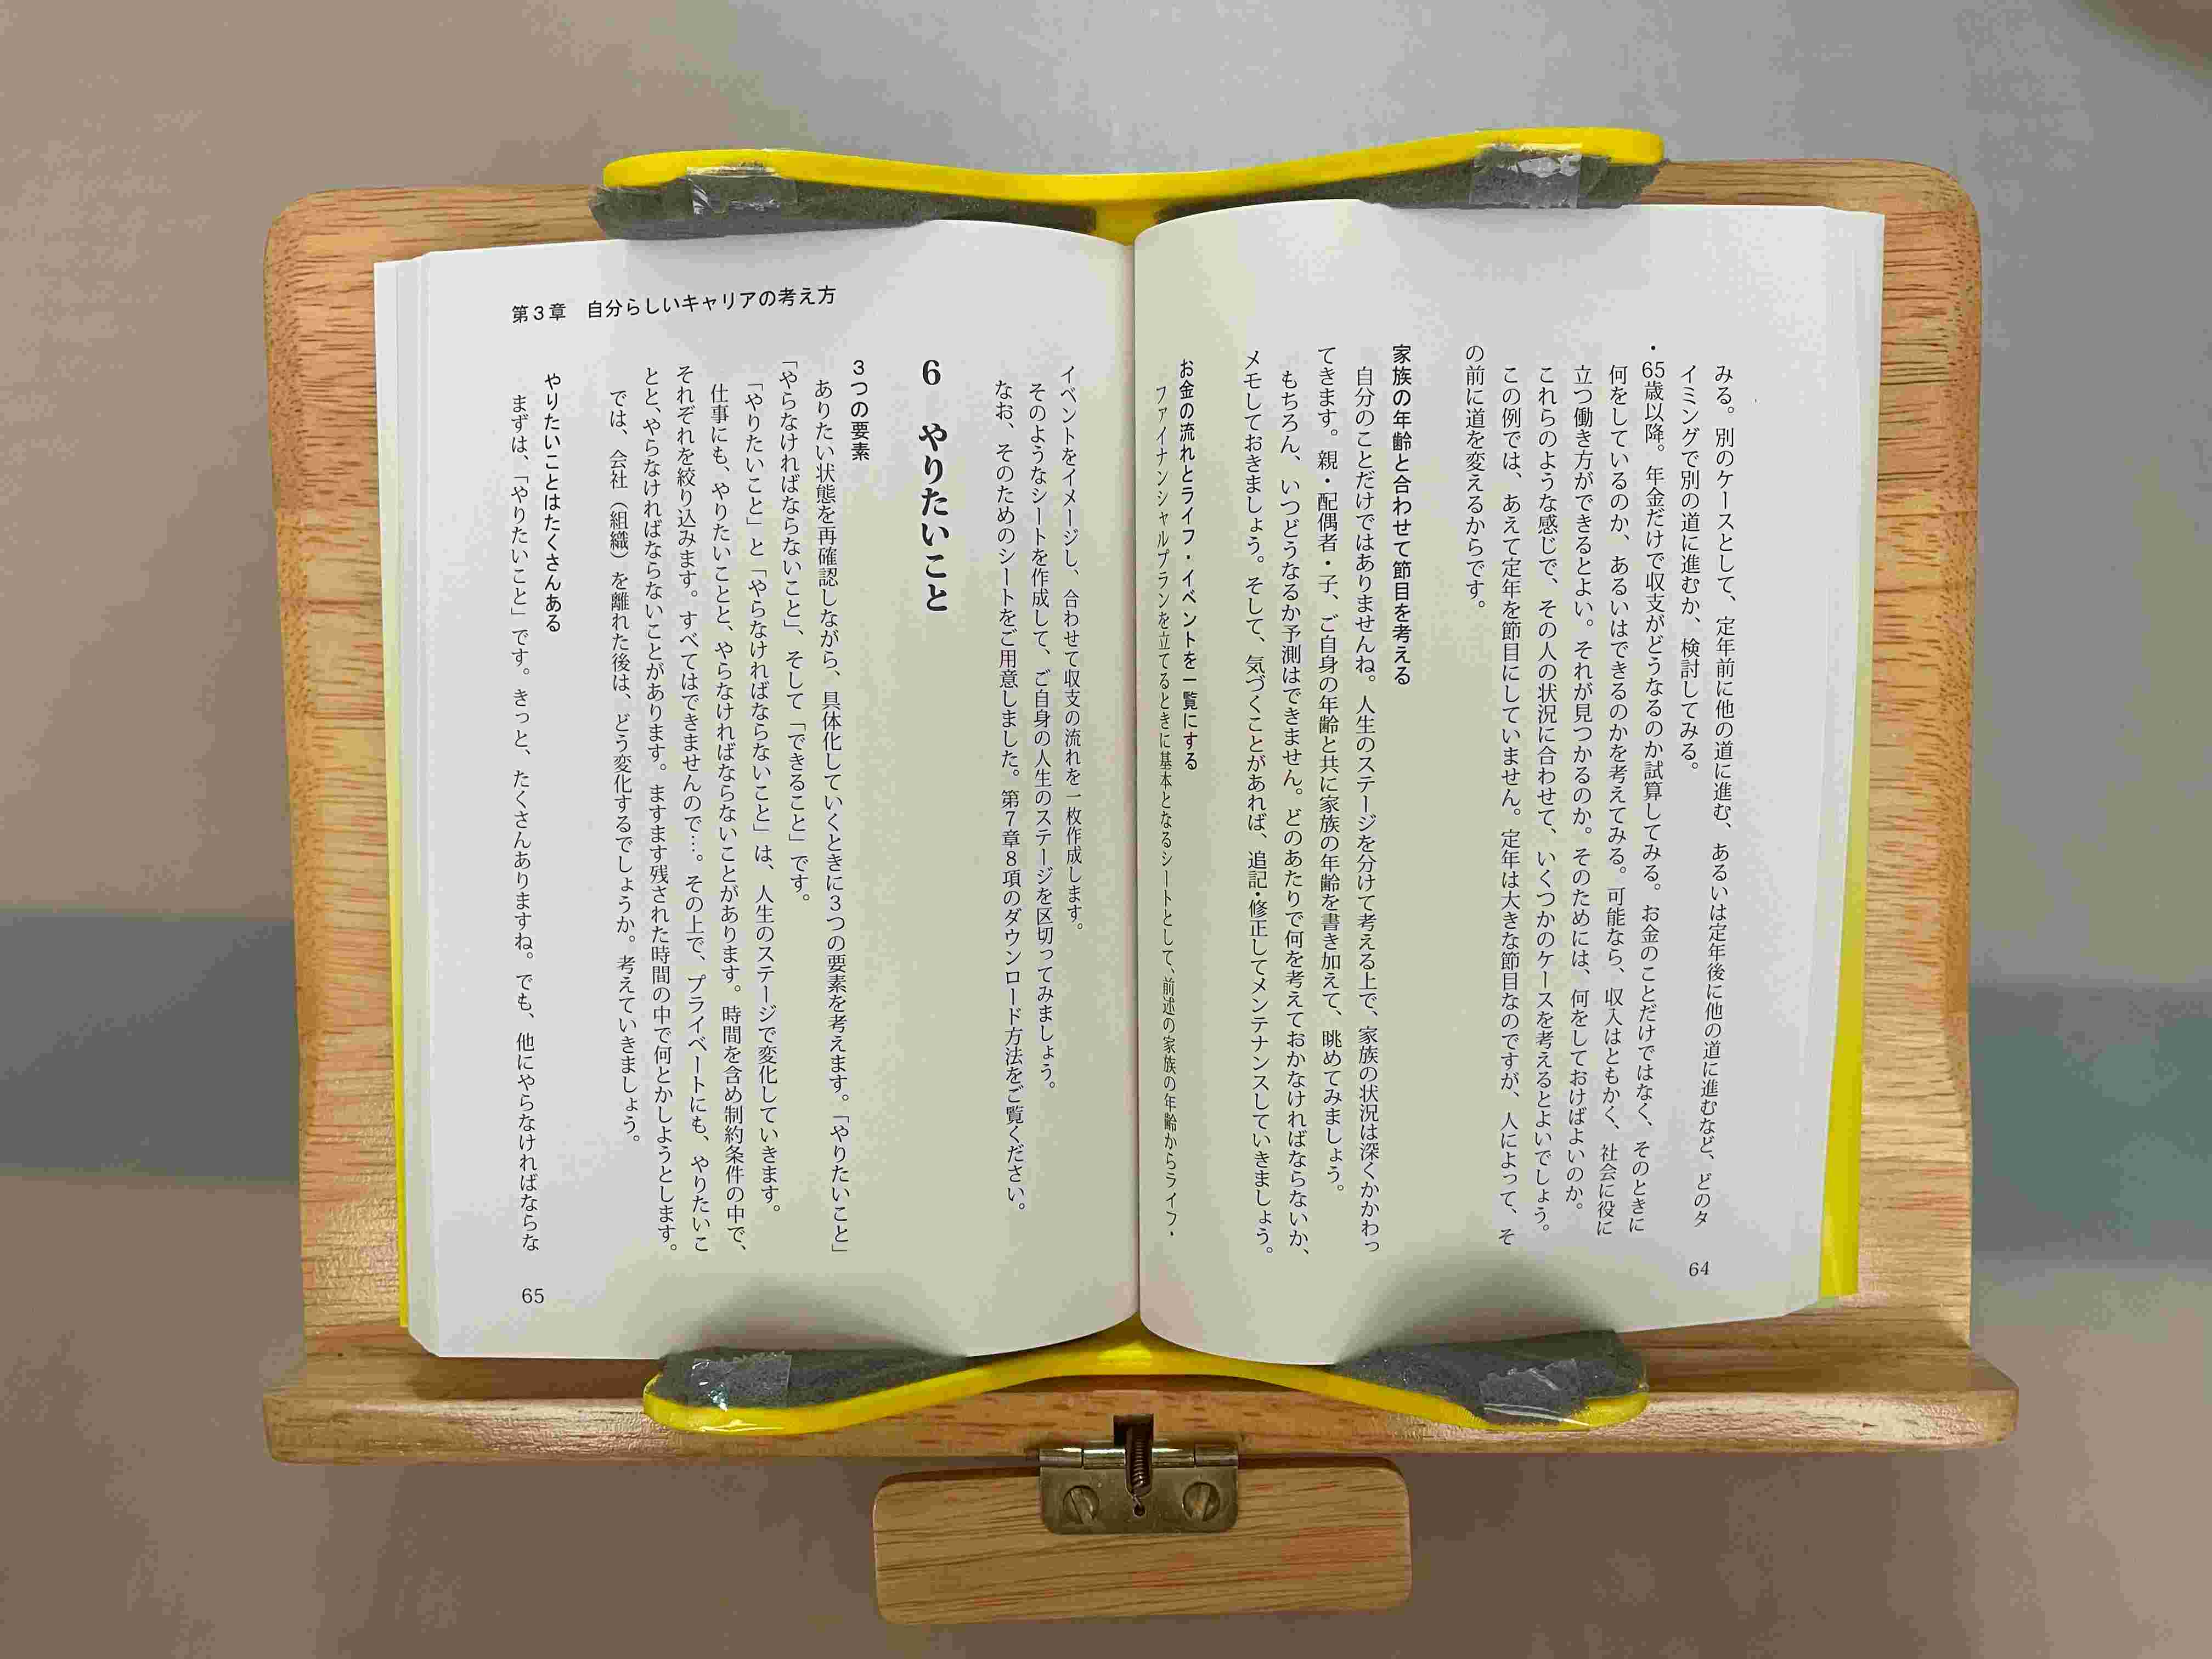 みる。別のケースとして、定年前に他の道に進む、あるいは定年後に他の道に進むなど、どのタ
イミングで別の道に進むか、検討してみる。
・65歳以降。年金だけで収支がどうなるのか試算してみる。お金のことだけではなく、そのときに
何をしているのか、あるいはできるのかを考えてみる。可能なら、収入はともかく、社会に役に
立つ働き方ができるとよい。それが見つかるのか。そのためには、何をしておけばよいのか。
これらのような感じで、その人の状況に合わせて、いくつかのケースを考えるとよいでしょう。
この例では、あえて定年を節目にしていません。定年は大きな節目なのですが、人によって、そ
の前に道を変えるからです。
家族の年齢と合わせて節目を考える
自分のことだけではありませんね。人生のステージを分けて考える上で、家族の状況は深くかかわっ
てきます。親・配偶者・子、ご自身の年齢と共に家族の年齢を書き加えて、眺めてみましょう。
もちろん、いつどうなるか予測はできません。どのあたりで何を考えておかなければならないか、
メモしておきましょう。そして、気づくことがあれば、追記・修正してメンテナンスしていきましょう。
お金の流れとライフ・イベントを一覧にする
ファイナンシャルプランを立てるときに基本となるシートとして、前述の家族の年齢からライフ・
64
イベントをイメージし、合わせて収支の流れを一枚作成します。
そのようなシートを作成して、ご自身の人生のステージを区切ってみましょう。
なお、そのためのシートをご用意しました。第7章8項のダウンロード方法をご覧ください。
6 やりたいこと
3つの要素
ありたい状態を再確認しながら、具体化していくときに3つの要素を考えます。「やりたいこと」
「やらなければならないこと」、そして「できること」です。
「やりたいこと」と「やらなければならないこと」は、人生のステージで変化していきます。
仕事にも、やりたいことと、やらなければならないことがあります。時間を含め制約条件の中で、
それぞれを絞り込みます。すべてはできませんので…。その上で、プライベートにも、やりたいこ
とと、やらなければならないことがあります。ますます残された時間の中で何とかしようとします。
では、会社（組織）を離れた後は、どう変化するでしょうか。考えていきましょう。
やりたいことはたくさんある
まずは、「やりたいこと」です。きっと、たくさんありますね。でも、他にやらなければならな
第3章 自分らしいキャリアの考え方
65